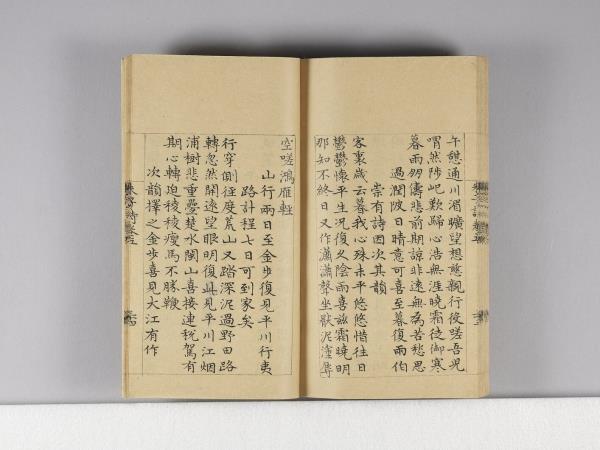 午憩通川湄曠望想慈親行役嗟吾兄
喟然陟屺歎歸心浩無涯曉霜徒御寒
暮雨朋儔悲前期諒非遠無為苦愁思
過潤陂日晴意可喜至暮復雨伯
崇有詩因次其韻
客裏歲云暮我心殊未平悠悠惜往日
鬱鬱懷平生况復久陰雨喜茲霜曉明
那知不終日又作瀟瀟聲坐歎泥潼辱
空嗟鴻雁輕
山行兩日至金步復見平川行夷
路計程七日可到家矣
行穿側徑度荒山又踏深泥過野田路
轉忽然開遠望眼明復此見平川江烟
浦樹悲重疊楚水閩山喜接連稅駕有
期心轉迫稜稜瘦馬不勝鞭
次韻擇之金步喜見大江有作